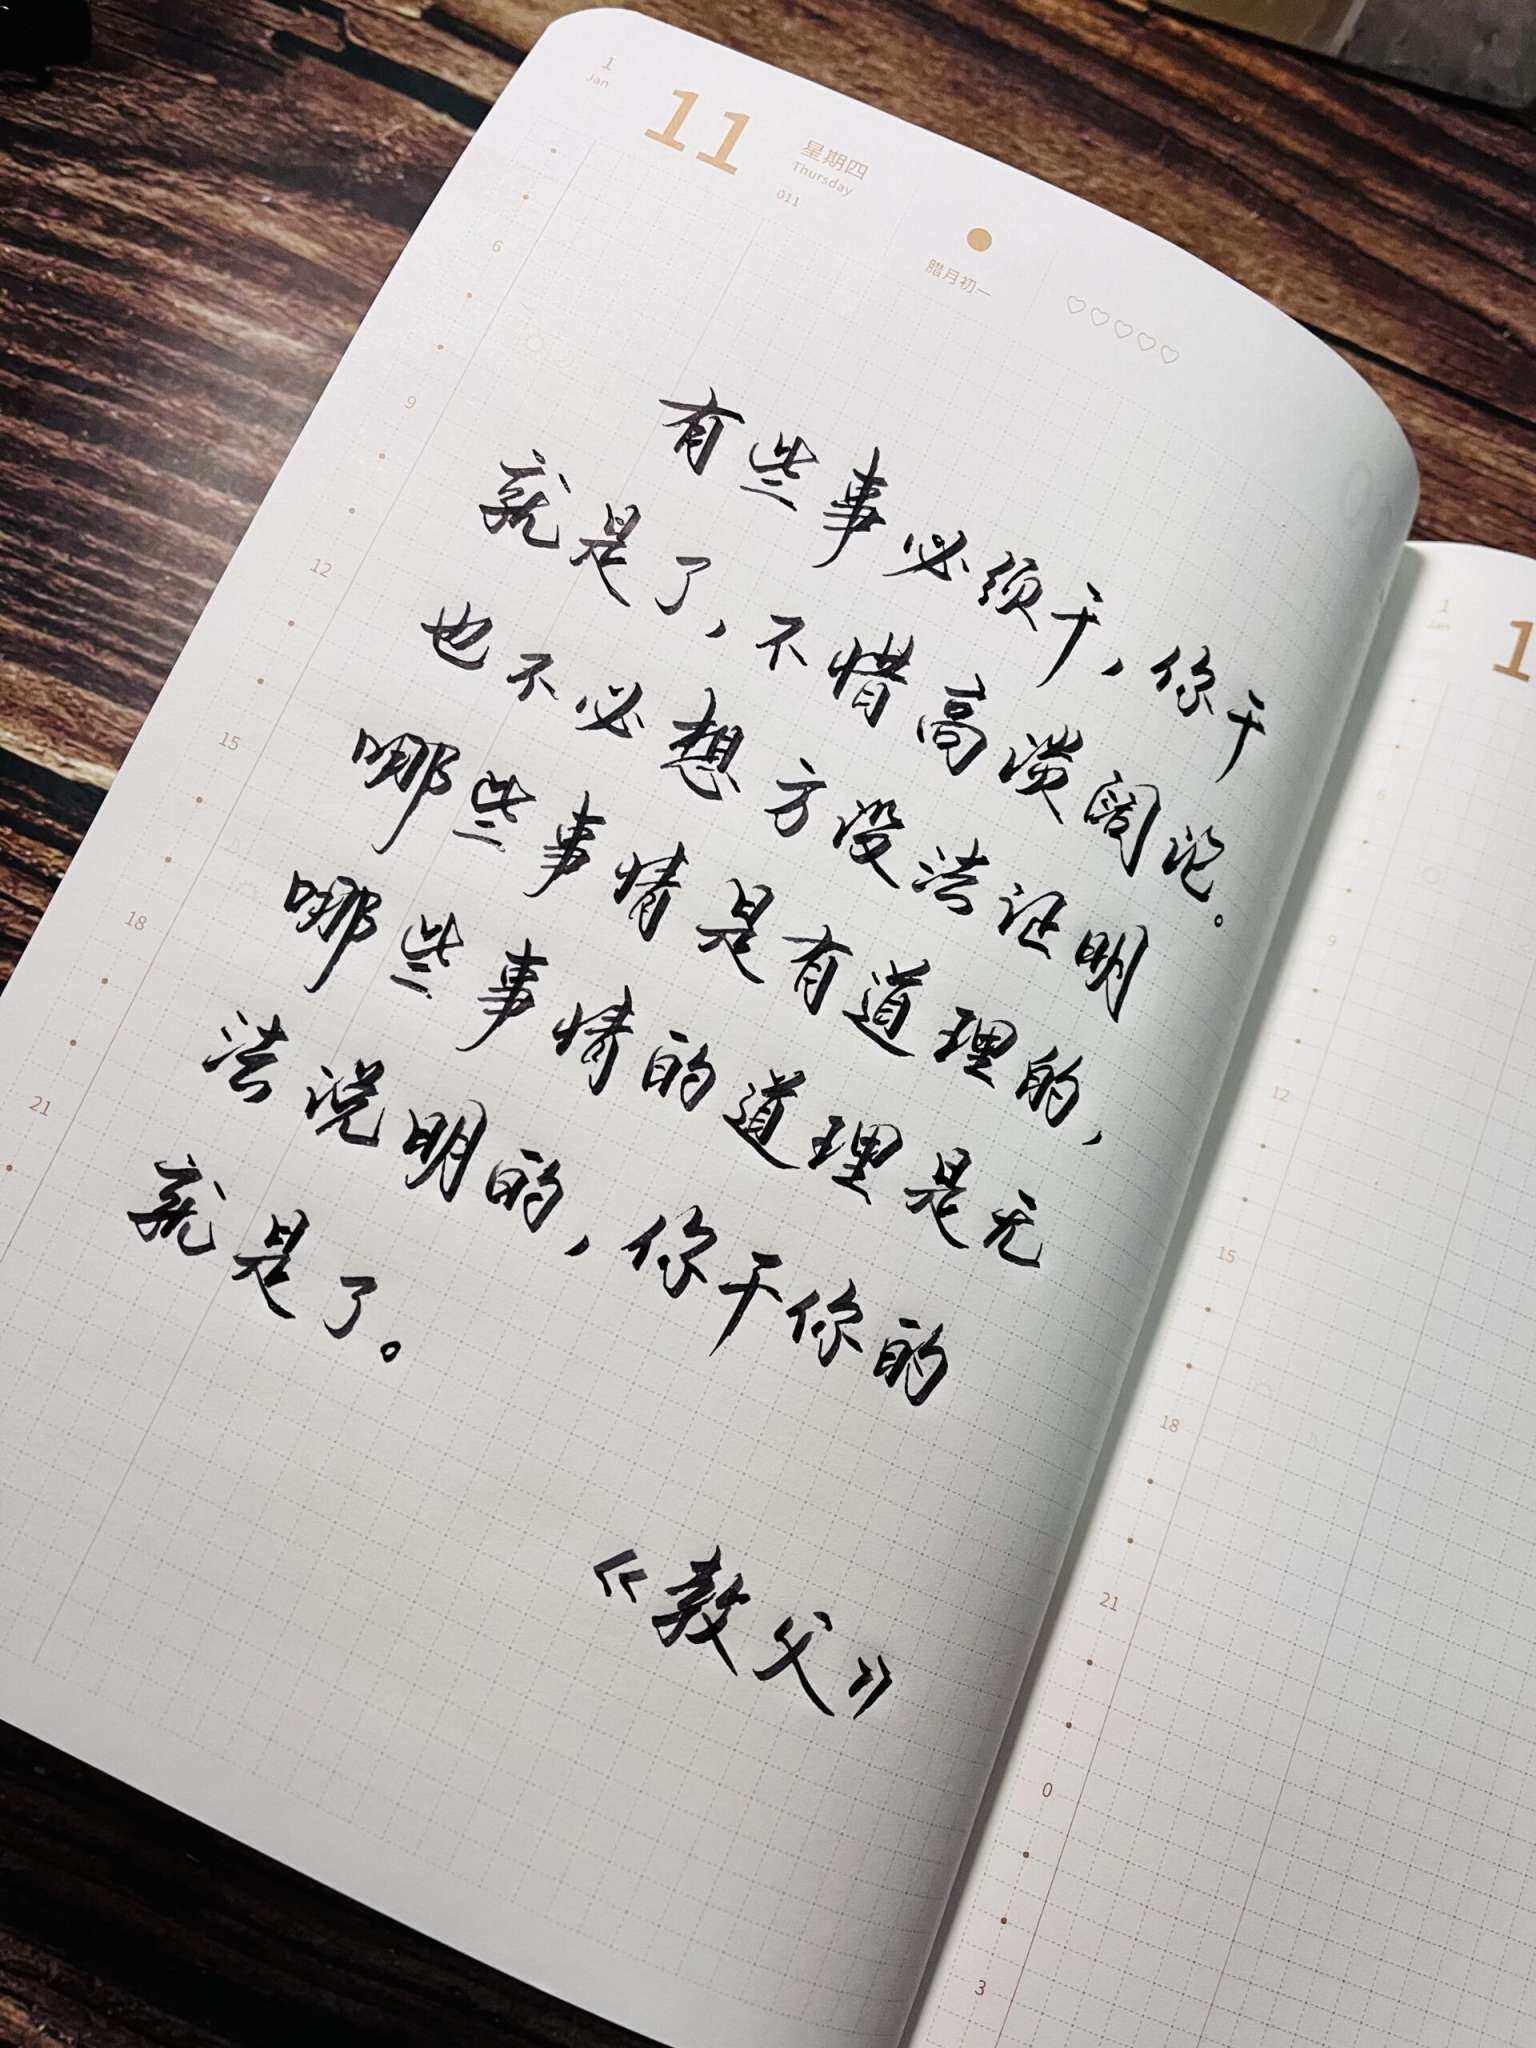 1
Jan
11
星期四
Thursday
011
腊月初一
有些事必须干,你干
就是了,不惜高谈阔论。
也不必想方设法证明
哪些事情是有道理的,
哪些事情的道理是无
法说明的,你干你的
就是了。
《教父》
6
9
12
15
18
21
1
1
9
12
15
18
21
0
3